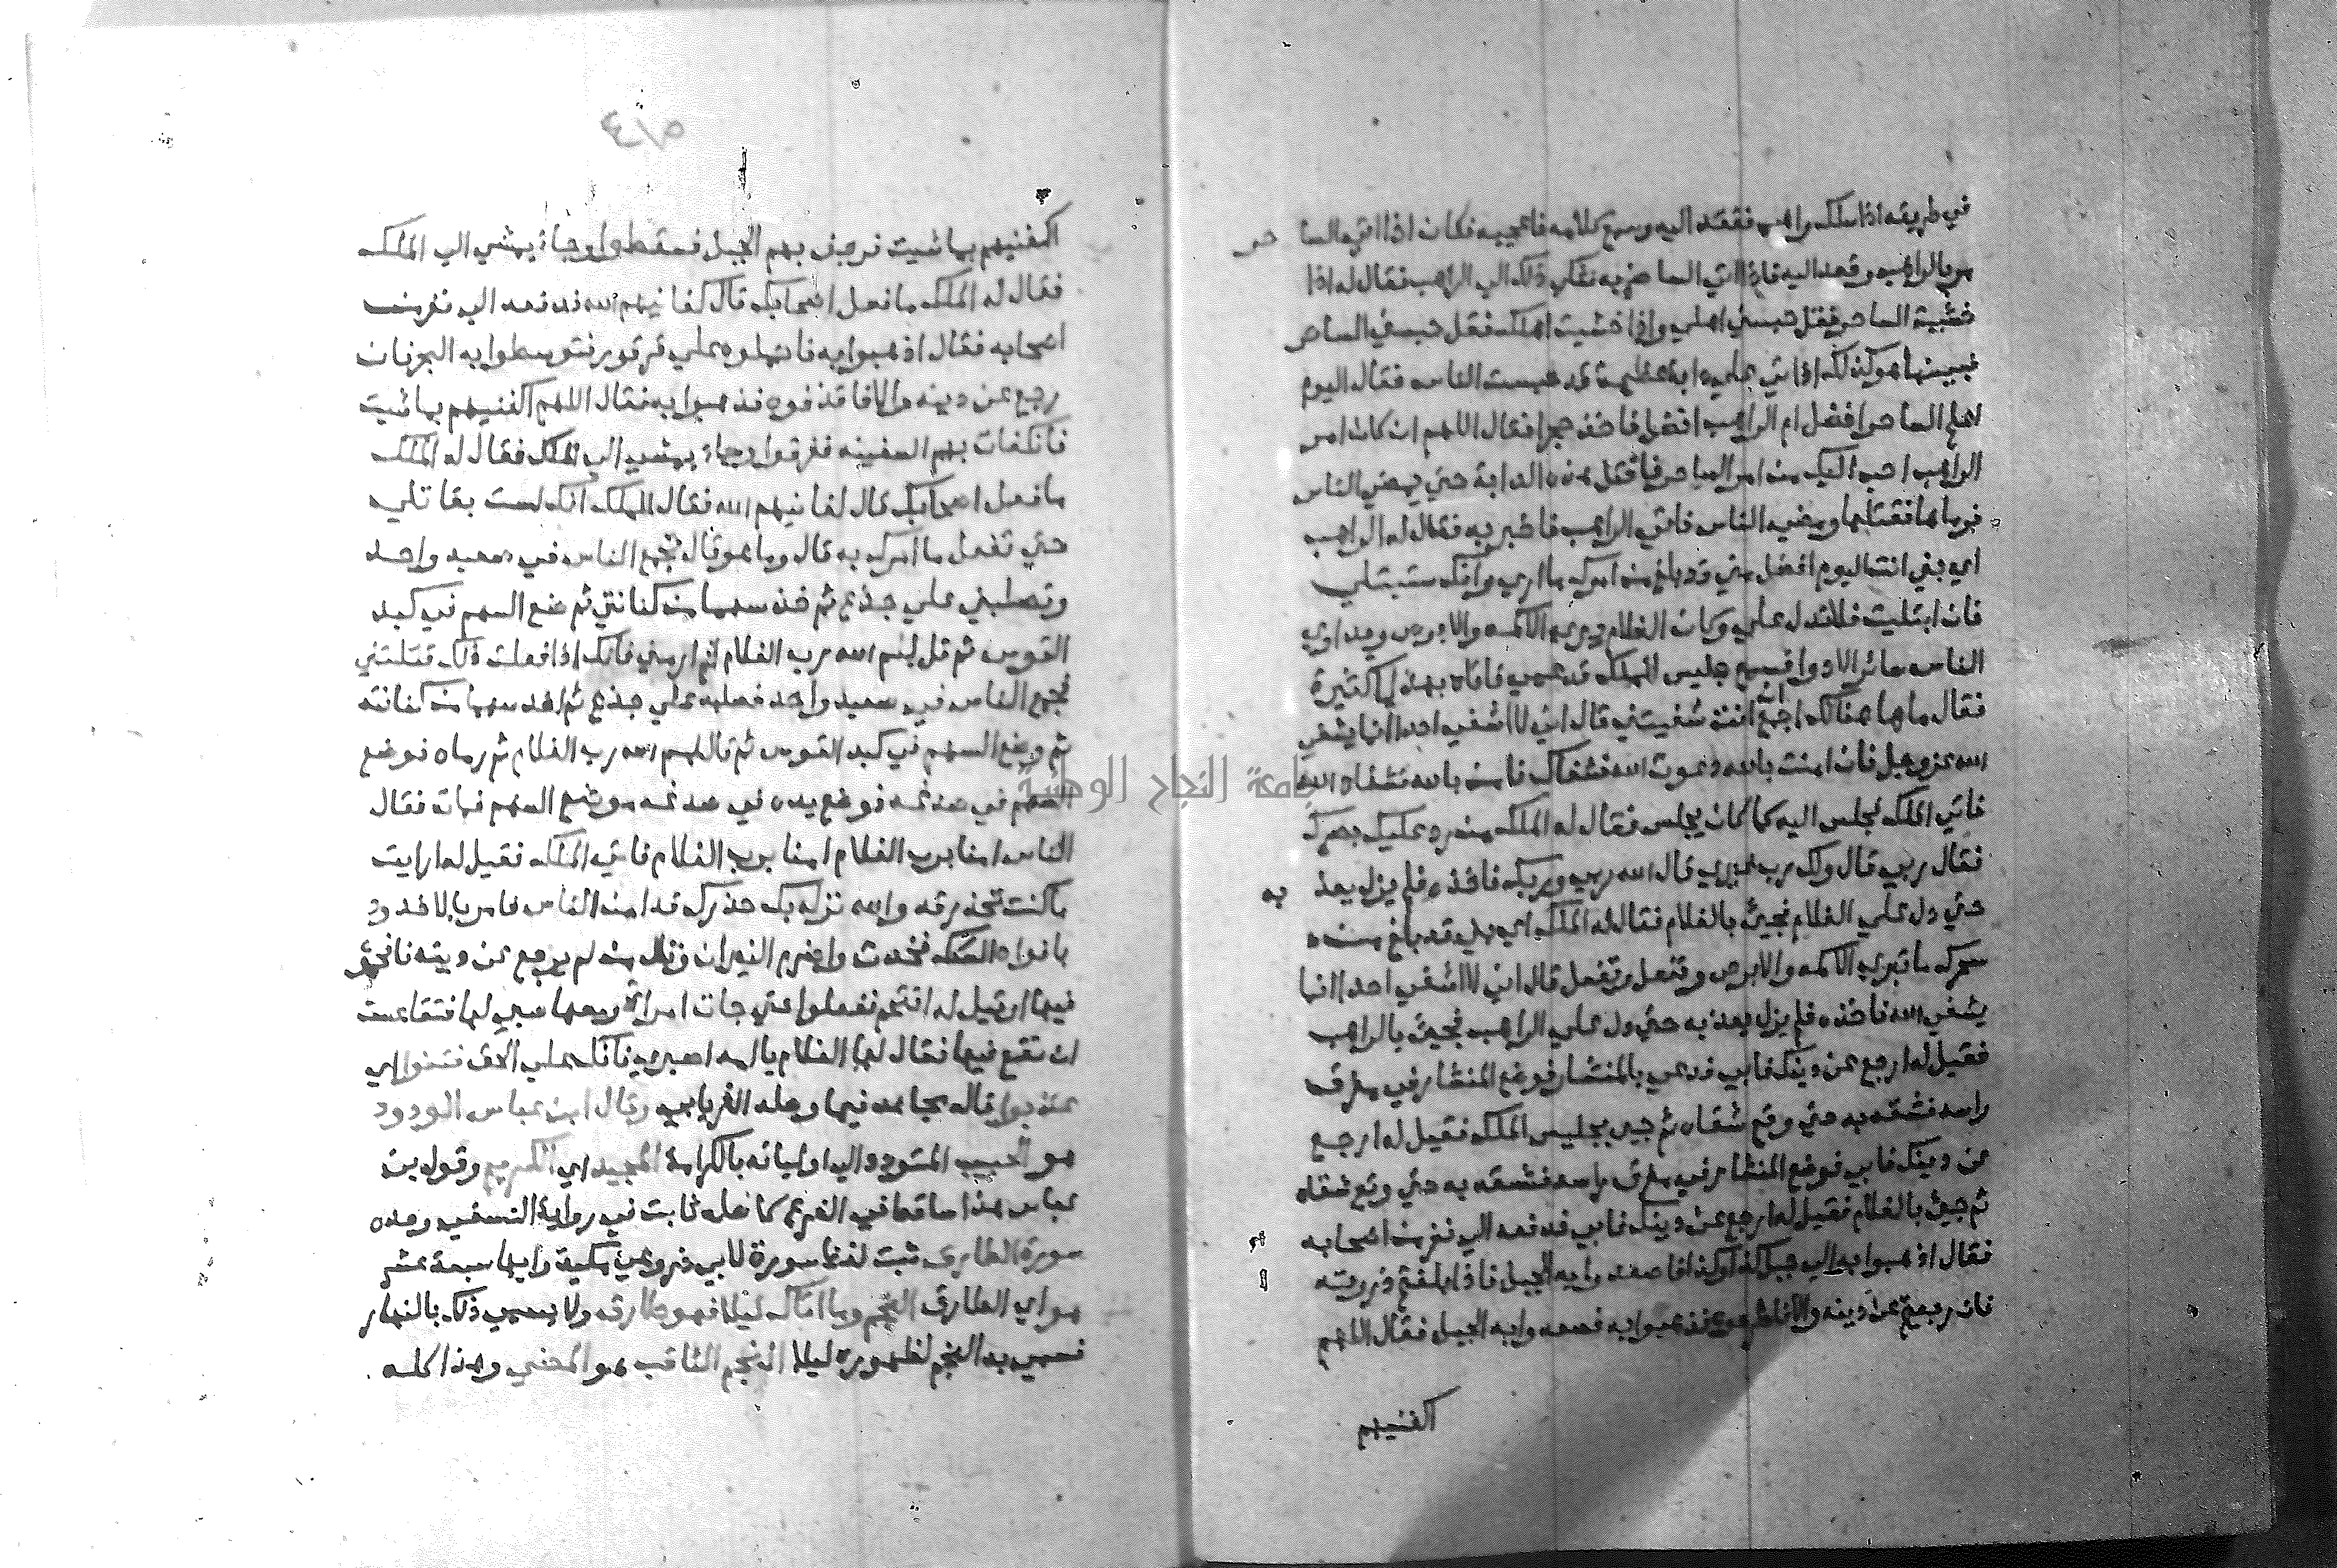 في طريقه اذا سلك راهب فقعد اليه وسمع كلامه فاعجبه فكان اذا اتي السا حر
مر بالراهب وقعد اليه فاذا اتي الساحر ضربه فشكي ذلك الي الراهب فقال له اذا
خشيت الساحر فقل حبسني اهلي واذا خشيت اهلك فقل حبسني الساحر
فبينما هو كذلك اذ اتي علي دابة عظيمة قد حبست الناس فقال اليوم
اعلم الساحر افضل ام الراهب افضل فاخذ حجرا فقال اللهم ان كان امر
الراهب احب اليك من امر الساحر فاقتل هذه الدابة حتي يمضي الناس
فرماها فقتلها ومضي الناس فاتي الراهب فاخبره فقال له الراهب
اي بني انت اليوم افضل مني قد بلغ من امرك ما اري وانك ستبتلي
فان ابتليت فلا تدل علي وكان الغلام يبري الاكمه والابرص ويداوي
الناس سائر الادوا فسمع جليس للملك قد عمي فاتاه بهدايا كثيرة
فقال ما هاهنا لك اجمع ان انت شفيتني قال اني لا اشفي احدا انما يشفي
الله عز وجل فان امنت بالله دعوت الله فشفاك فامن بالله فشفاه الله
فاتي الملك فجلس اليه كما كان يجلس فقال له الملك من رد عليك بصرك
فقال ربي قال ولك رب غيري قال الله ربي وربك فاخذه فلم يزل يعذ به
حتي دل علي الغلام فجيئ بالغلام فقال له الملك اي بني قد بلغ من
سحرك ما تبري الاكمه والابرص وتفعل وتفعل قال اني لا اشفي احدا انما
يشفي الله فاخذه فلم يزل يعذبه حتي دل علي الراهب فجيئ بالراهب
فقيل له ارجع عن دينك فابي فدعي بالمنشار فوضع المنشار في مفرق
راسه فشقه به حتي وقع شقاه ثم جيى بجليس الملك فقيل له ارجع
عن دينك فابي فوضع المنشار في مفرق راسه فشقه به حتي وقع شقاه
ثم جيئ بالغلام فقيل له ارجع عن دينك فابي فدفعه الي نفر من اصحابه
فقال اذهبوا به الي جبل كذا وكذا فاصعدوا به الجبل فاذا بلغتم ذروته
فان رجع عن دينه والا فاطرحوه فذهبوا به فصعدوا به الجبل فقال اللهم
اكفنيهم
٤١٥
اكفنيهم بما شيت فرجف بهم الجبل فسقطوا وجاء يمشي الي الملك
فقال له الملك ما فعل اصحابك قال كفانيهم الله فدفعه الي نفر من
اصحابه فقال اذهبوا به فاحملوه علي قرقور فتوسطوا به البحر فان
رجع عن دينه والا فاقذفوه فذهبوا به فقال اللهم اكفنيهم بما شيت
فانكفات بهم السفينه فغرقوا وجاء يمشي الي الملك فقال له الملك
ما فعل اصحابك قال كفانيهم الله فقال للملك انك لست بقاتلي
حتي تفعل ما امرك به قال وما هو قال تجمع الناس في صعيد واحد
وتصلبني علي جذع ثم خذ سهما من كنانتي ثم ضع السهم في كبد
القوس ثم قل بسم الله رب الغلام ثم ارمني فانك اذا فعلت ذلك قتلتني
فجمع الناس في صعيد واحد فصلبه علي جذع ثم اخذ سهما من كنانته
ثم وضع السهم في كبد القوس ثم قال بسم الله رب الغلام ثم رماه فوضع
السهم في صدغه فوضع يده في صدغه موضع السهم فمات فقال
الناس امنا برب الغلام امنا برب الغلام فاتي الملك فقيل له ارايت
ما كنت تحذر قد والله نزل بك حذرك قد امن الناس فامر بالاخدود
بافواه السكك فخدت واضرم النيران وقال من لم يرجع عن دينه فاحموه
فيها او قيل له اقتحم ففعلوا حتي جات امراة ومعها صبي لها فتقاعست
ان تقع فيها فقال لها الغلام يا امه اصبري فانك علي الحق فتنوا اي
عذبوا قاله مجاهد فيما وصله الفريابي وقال ابن عباس الودود
هو الحبيب المتودد الي اوليائه بالكرامة المجيد اي الكريم وقول بن
عباس هذا ساقط في الفرع كاصله ثابت في رواية النسفي وحده
سورة الطارق ثبت لفظ سورة لابي ذر وهي مكية وايها سبعة عشر
هو اي الطارق النجم وما اتاك ليلا فهو طارق ولا يسمي ذلك بالنهار
فسمي به النجم لظهوره ليلا النجم الثاقب هو المضي وهذا كله